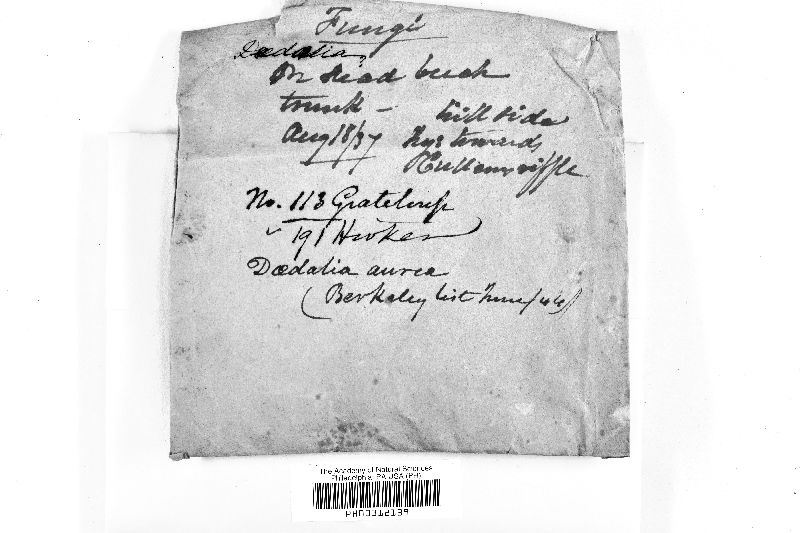 Fungi
Dædalia,
On dead beech
trunk – hill side
Aug 18/37 Kys towards
Mullensriffle
No. 113 Grateloup
191 Hooker
Dædalia aurea
(Berkeley list June/44)
The Academy of Natural Sciences
Philadelphia, PA USA (PH)
PH00312139